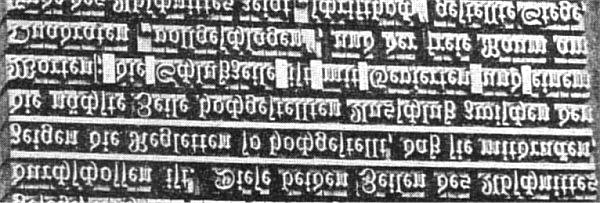 durchschossen ist. Diese beiden Zeilen des Abschnittes
zeigen die Regletten so hochgestellt, daß sie mitdrucken,
die nächste Zeile hochgestellten Ausschluß zwischen den
Worten, die Schlußzeile ist mit Gevierten und einem
Quadraten „vollgeschlagen“, und der freie Raum am
Ende des Abschnittes zeigt „schrifthoch“ gestellte Stege